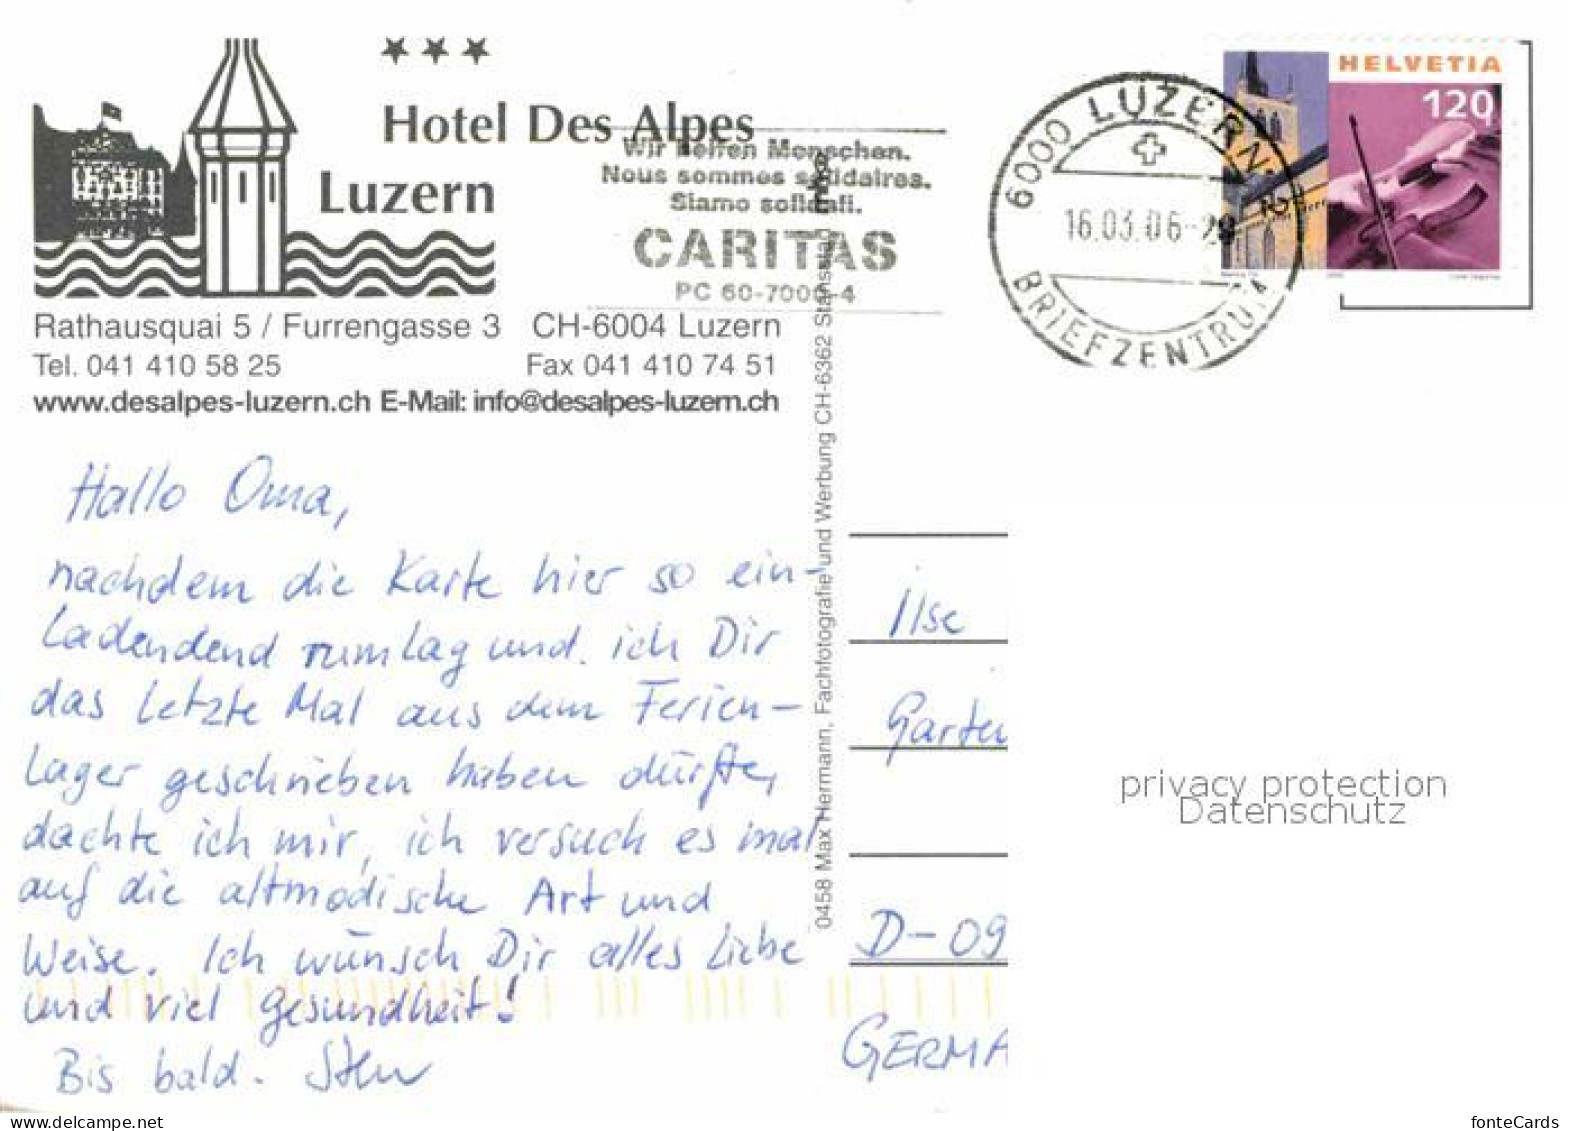 Hotel Des Alpes
Luzern
Rathausquai 5 / Furrengasse 3 CH-6004 Luzern
Tel. 041 410 58 25 Fax 041 410 74 51
www.desalpes-luzern.ch E-Mail: info@desalpes-luzern.ch
Wir helfen Menschen.
Nous sommes solidaires.
Siamo solidali.
CARITAS
PC 60-7000-4
6000 LUZERN 2
16.03.06-20
BRIEFZENTRUM
HELVETIA
120
Hallo Oma,
nachdem die Karte hier so ein-
ladendend rumlag und ich Dir
das letzte Mal aus dem Ferien-
lager geschrieben haben dürfte,
dachte ich mir, ich versuch es mal
auf die altmodische Art und
Weise. Ich wünsch Dir alles Liebe
und viel Gesundheit!
Bis bald.
0458 Max Hermann, Fachfotografie und Werbung CH-6362 Stansstad
Ilse
Garten
D-09
GERMA
privacy protection
Datenschutz
www.delcampe.net
fonteCards